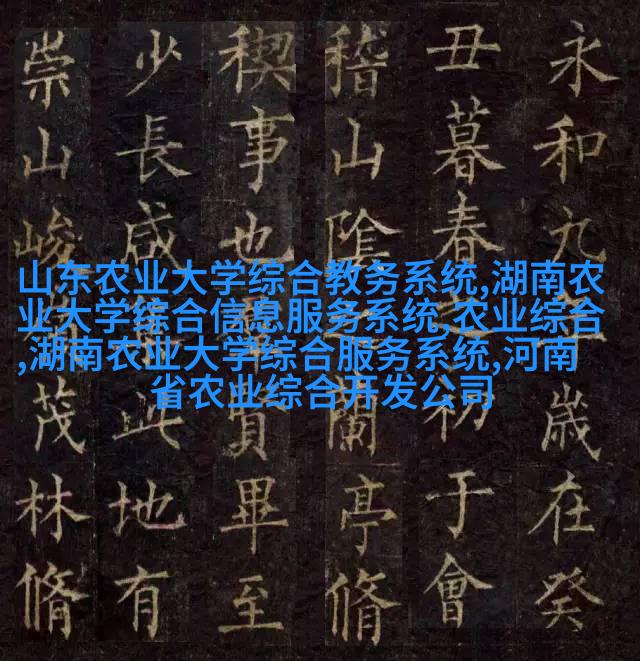 山东农业大学综合教务系统,湖南农
业大学综合信息服务系统,农业综合
,湖南农业大学综合服务系统,河南
省农业综合开发公司
永和九歲在癸
丑暮春之初于會
稽山陰之蘭亭脩
稧事也賢畢至
少長咸此地有
崇山峻茂林脩